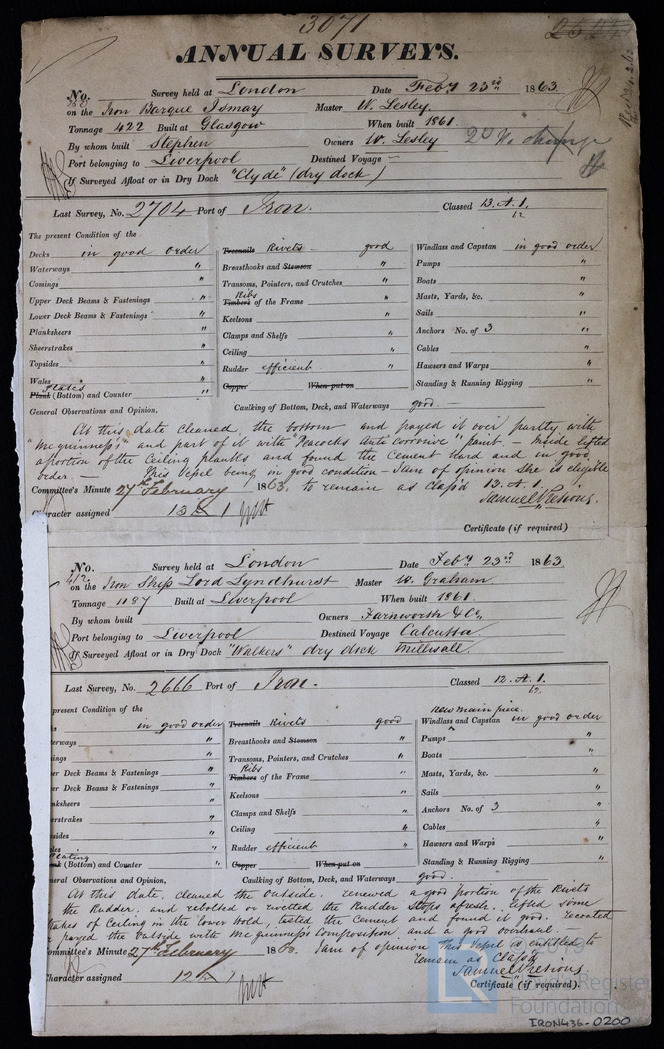 3071
ANNUAL SURVEYS.
No. Survey held at London Date Feby 23rd 1863
on the Iron Barque Ismay Master W. Lesley
Tonnage 422 Built at Glasgow When built 1861.
By whom built Stephen Owners W. Lesley
Port belonging to Liverpool Destined Voyage —
If Surveyed Afloat or in Dry Dock "Clyde" (dry dock)
Last Survey, No. 2704 Port of Iron. Classed 13.A.1.
12
The present Condition of the
Decks in good order Treenails Rivets good Windlass and Capstan in good order
Waterways " Breasthooks and Stemson " Pumps "
Comings " Transoms, Pointers, and Crutches " Boats "
Upper Deck Beams & Fastenings " Timbers Ribs of the Frame " Masts, Yards, &c. "
Lower Deck Beams & Fastenings " Keelsons " Sails "
Planksheers " Clamps and Shelfs " Anchors No. of 3 "
Sheerstrakes " Ceiling " Cables "
Topsides " Rudder efficient " Hawsers and Warps "
Wales " Copper When put on Standing & Running Rigging "
Plank Plates (Bottom) and Counter " Caulking of Bottom, Deck, and Waterways good. —
General Observations and Opinion,
At this date cleaned the bottom and payed it over partly with
"McGuinness's" and part of it with "Peacocks Anti corrosive" paint — Inside lifted
a portion of the Ceiling planks and found the cement hard and in good
order. — This vessel being in good condition — I am of opinion she is eligible
to remain as class'd 13.A.1.
Committee's Minute 27th February 1863.
Samuel Pretious
Character assigned 13 A 1
Certificate (if required)
No. Survey held at London Date Feby 23rd 1863
412
on the Iron Ship Lord Lyndhurst Master W. Graham
Tonnage 1187 Built at Liverpool When built 1861.
By whom built Owners Farnworth & Co,
Port belonging to Liverpool Destined Voyage Calcutta.
If Surveyed Afloat or in Dry Dock "Walkers" dry dock Millwall.
Last Survey, No. 2666 Port of Iron. Classed 12.A.1.
12.
present Condition of the new main piece.
in good order Treenails Rivets good Windlass and Capstan in good order
erways " Breasthooks and Stemson " Pumps "
ings " Transoms, Pointers, and Crutches " Boats "
er Deck Beams & Fastenings " Timbers Ribs of the Frame " Masts, Yards, &c. "
er Deck Beams & Fastenings " Keelsons " Sails "
nksheers " Clamps and Shelfs " Anchors No. of 3 "
erstrakes " Ceiling " Cables "
sides " Rudder efficient " Hawsers and Warps "
les " Copper When put on Standing & Running Rigging "
(Bottom) and Counter " Caulking of Bottom, Deck, and Waterways good.
eral Observations and Opinion,
At this date, cleaned the outside. renewed a good portion of the Rivets
the Rudder, and rebolted or rivetted the Rudder Stops afresh. Lifted some
rakes of Ceiling in the lower Hold, tested the Cement and found it good. recoated
payed the outside with McGuinness Composition and a good overhaul.
ommittee's Minute 27th February 186 I am of opinion this Vessel is entitled to
remain as Class'd
Samuel Pretious
Character assigned 12 A 1
Certificate (if required).
© 2019
LR
Register
Foundation
IRON436-0200